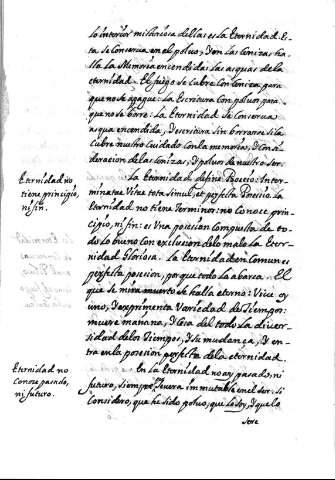 lo interior mi licñosa dellas es la Eternidad. Es
ta se Conserva en el polvo, y en las Cenizas ha
lla la Memoria encendidas las asquas de la
eternidad. El fuego se Cubre Con Ceniza para
que no se apague: La Escritura Con polvos para
que no se borre: La Eternidad se Conserva
asqua encendida, y escritura sin borrarse si la
Cubre nuestro Cuidado Con la memoria, y Consi
deracion de las Cenizas, y polvos de nuestro ser.
Eternidad no
tiene principio,
ni fin.
La Eternidad define Boecio: Inter-
minatae Vitae tota simul, et perfecta Posesio. La
Eternidad no tiene Terminos: no Conoce prin-
cipio, ni fin: es Vna posesion Compuesta de to-
do lo bueno Con exclusion de lo malo la Eter-
nidad Gloriosa. La Eternidad en Comun es
perfecta posesion, porque todo la abarca. El
que se mira muerto se halla eterno: Vive oy
uno, y experimenta Variedad de Tiempos:
muere mañana, y Cesa del todo la diver-
sidad de los Tiempos, y su mudanza, y en-
tra en la posesion perfecta de la eternidad.
Eternidad no
Conose pasado,
ni futuro.
En la Eternidad no ay pasado, ni
futuro, siempre persevera immutable en el ser: si
Considero, que he sido polvo, que lo soy, y que lo
sere